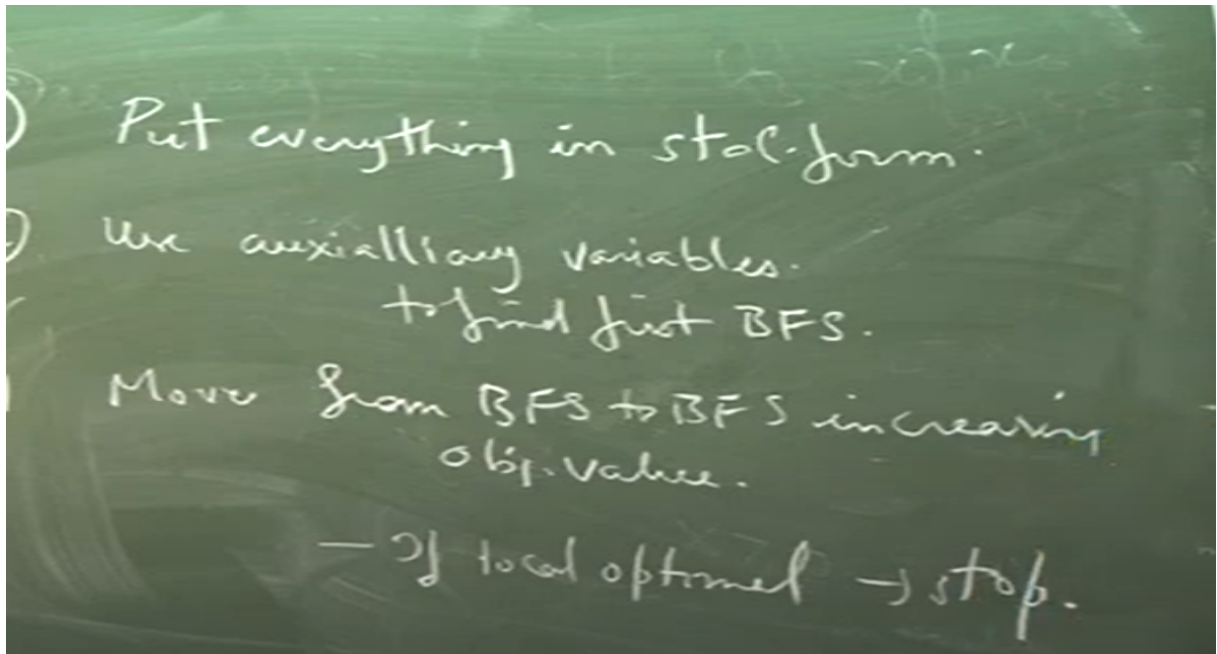 Put everything in std. form.
Use auxialliary variables.
to find first BFS.
Move from BFS to BFS increasing
obj. value.
- If local optimal → stop.